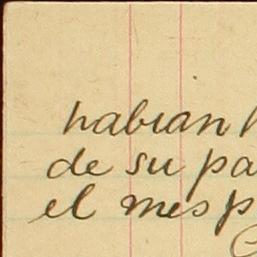 habian
de su pa
el mes p